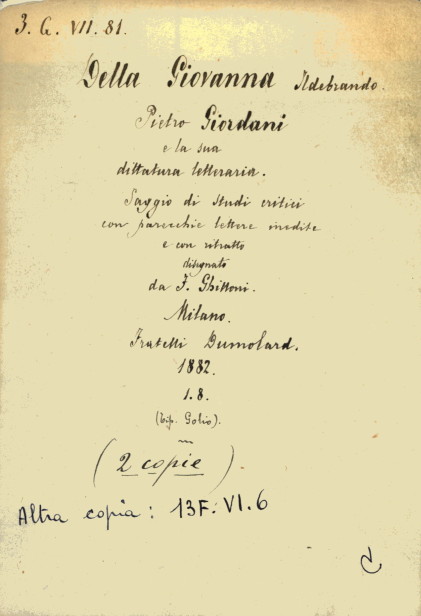 3. G. VII. 81.
Della Giovanna Ildebrando.
Pietro Giordani
e la sua
dittatura letteraria.
Saggio di studi critici
con parecchie lettere inedite
e con ritratto
disegnato
da F. Ghittoni.
Milano.
Fratelli Dumolard.
1882.
1.8.
(Tip. Golio).
(2 copie).
Altra copia: 13F. VI. 6